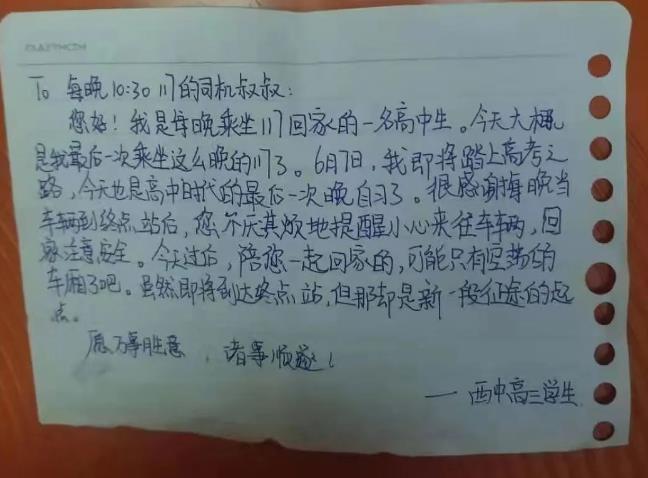 To 每晚10:30 117的司机叔叔：
您好！我是每晚乘坐117回家的一名高中生。今天大概
是我最后一次乘坐这么晚的117了。6月7日，我即将踏上高考之
路，今天也是高中时代的最后一次晚自习了。很感谢每晚当
车辆到终点站后，您不厌其烦地提醒小心来往车辆，回
家注意安全。今天过后，陪您一起回家的，可能只有空荡的
车厢了吧。虽然即将到达终点站，但那却是新一段征途的起
点。
愿万事胜意，诸事顺遂！
——西中高三学生